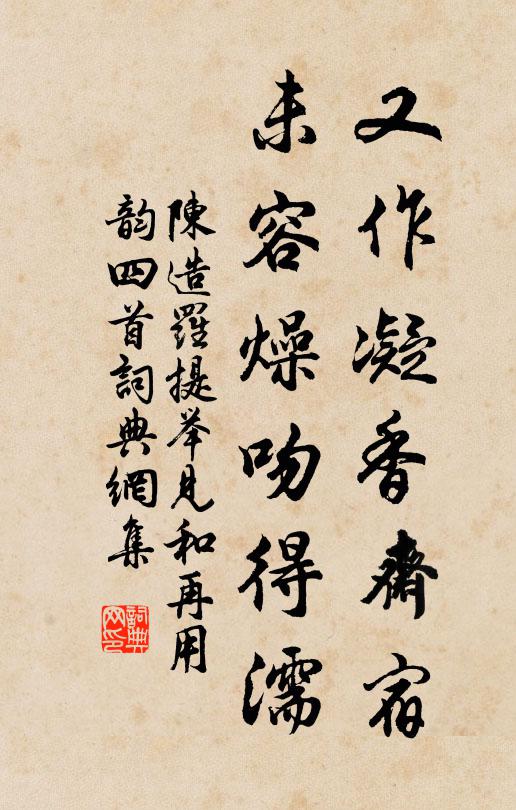 又作凝香齋宿
未容燥吻得濡
陳造羅提举見和再用
韵四首詞典網集
詞典网印